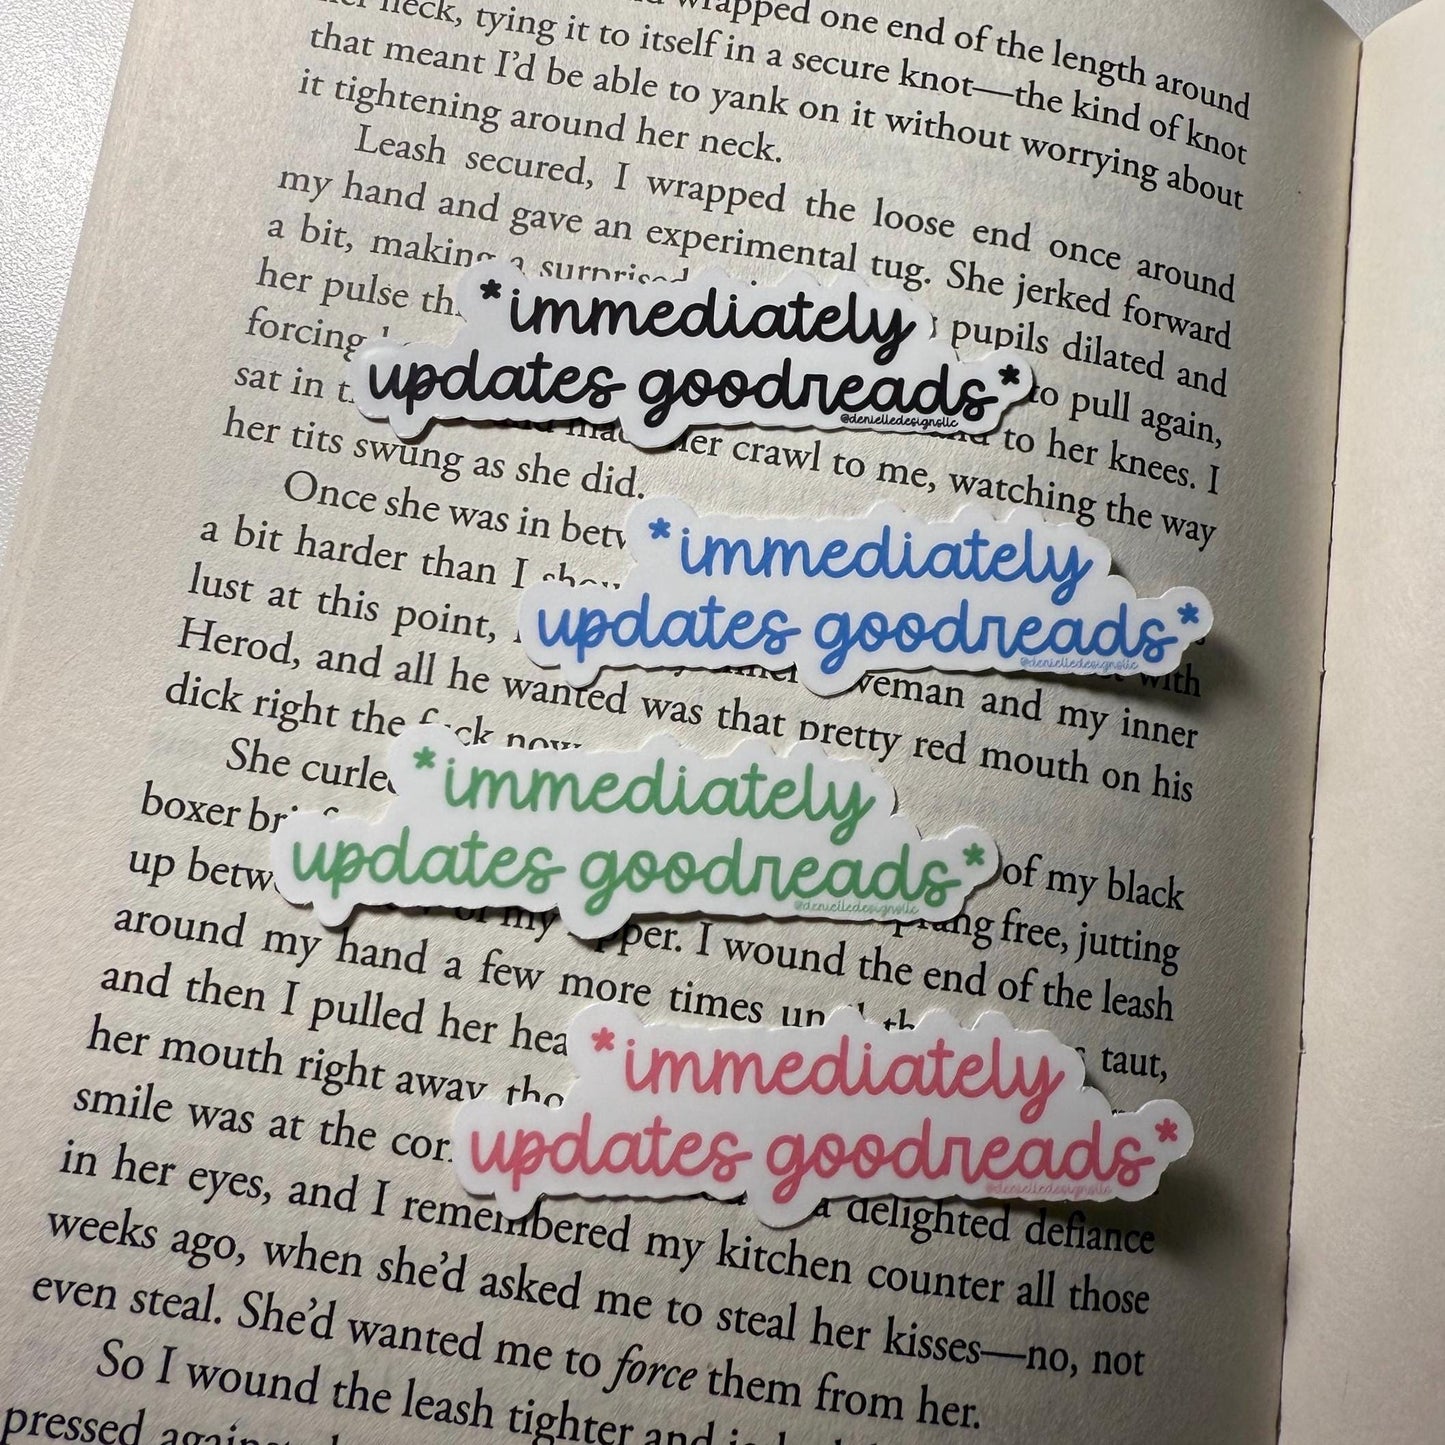 wrapped one end of the length around
her neck, tying it to itself in a secure knot—the kind of knot
that meant I'd be able to yank on it without worrying about
it tightening around her neck.
Leash secured, I wrapped the loose end once around
my hand and gave an experimental tug. She jerked forward
a bit, making a surprised pupils dilated and
her pulse to pull again,
forcing to her knees. I
sat in made her crawl to me, watching the way
her tits swung as she did.
*immediately
updates goodreads*
@denielledesignsllc
Once she was in
a bit harder than I
lust at this point, with
Herod, and all he wanted was that pretty red mouth on his
dick right the now
inner and my inner
*immediately
updates goodreads*
@denielledesignsllc
She curled of my black
boxer free, jutting
up of my I wound the end of the leash
around my hand a few more times until taut,
and then I pulled her
her mouth right away,
*immediately
updates goodreads*
@denielledesignsllc
smile was at the a delighted defiance
in her eyes, and I remembered my kitchen counter all those
weeks ago, when she'd asked me to steal her kisses—no, not
even steal. She'd wanted me to force them from her.
*immediately
updates goodreads*
@denielledesignsllc
So I wound the leash tighter and
pressed against